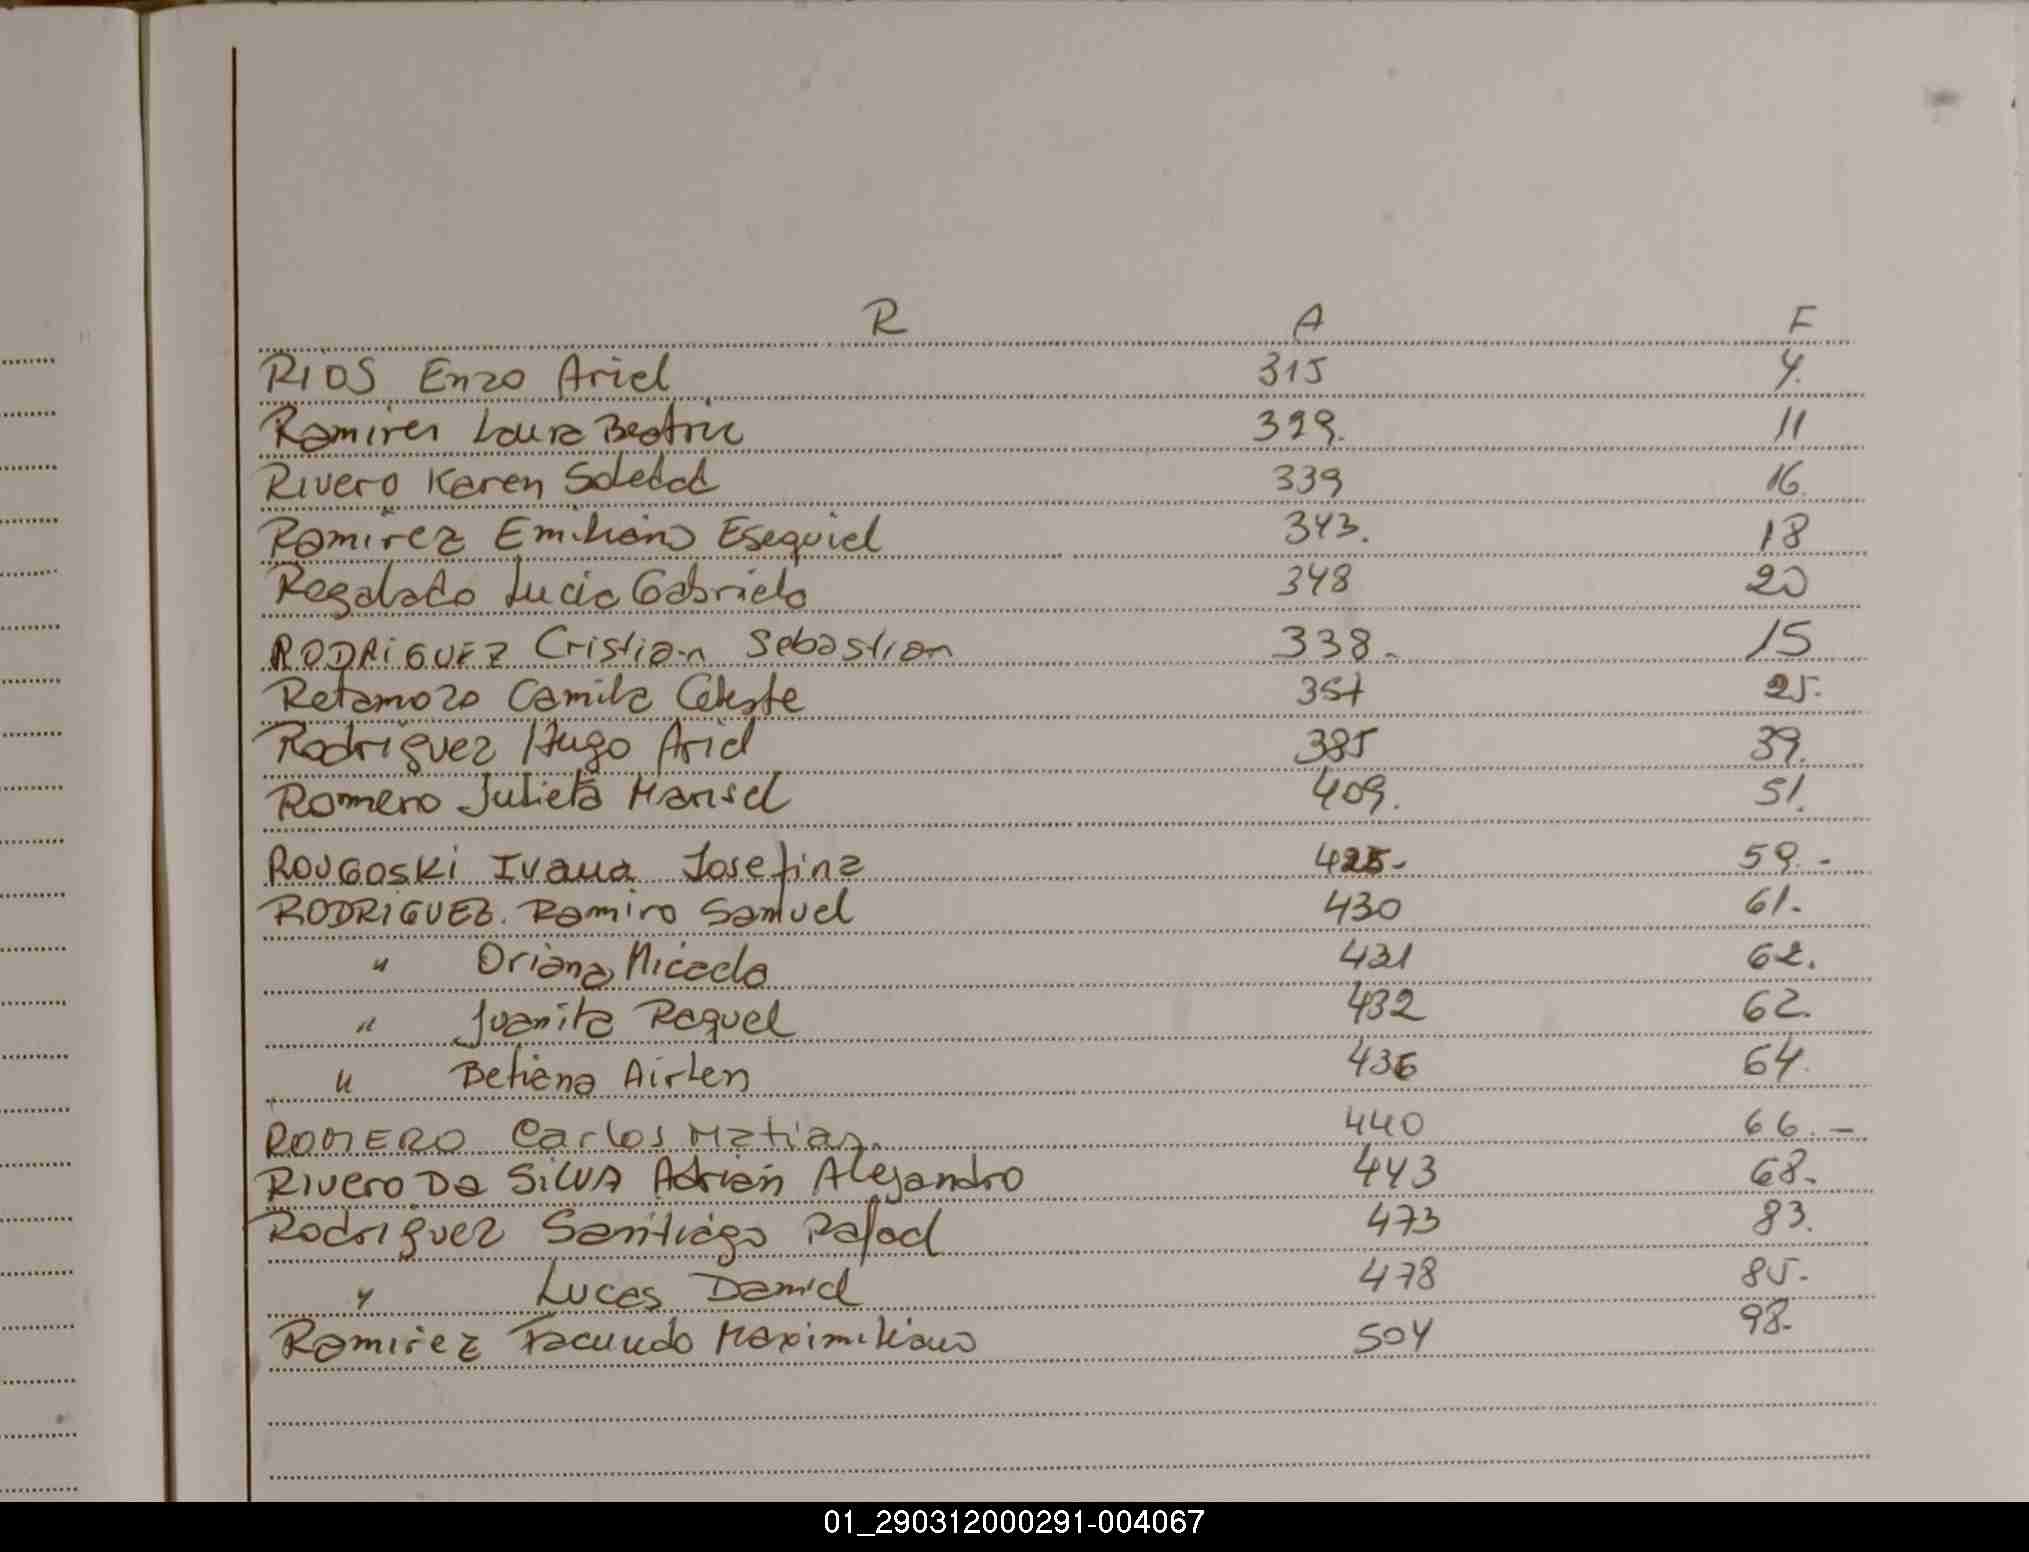 R A F
RIOS Enzo Ariel 315 4.
Ramirez Laura Beatriz 329. 11
Rivero Karen Soledad 339 16
Ramirez Emiliano Esequiel 343. 18
Regalado Lucia Gabriela 348 20
RODRIGUEZ Cristian Sebastian 338.- 15
Retamozo Camila Celeste 357 25.
Rodriguez Hugo Ariel 385 39.
Romero Julieta Marisel 409. 51.
ROUGOSKI Ivana Josefina 425- 59.-
RODRIGUEZ. Ramiro Samuel 430 61.-
" Oriana Micaela 431 62.
" Juanita Raquel 432 62.
" Betiana Airlen 436 64.
ROMERO Carlos Matias. 440 66.-
Rivero Da SilVA Adrián Alejandro 443 68.-
Rodriguez Santiago Rafael 473 83.
" Lucas Daniel 478 85.-
Ramirez Facundo Maximiliano 504 98.-
01_290312000291-004067